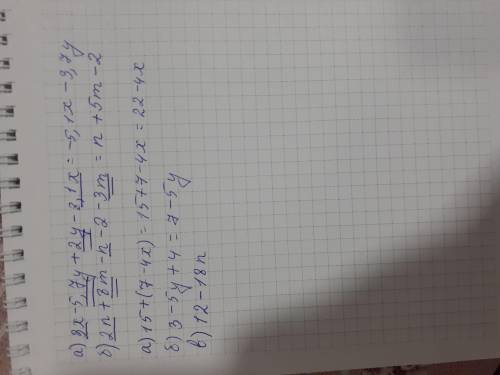 а) 8x-5,7y+2y-3,1x=-5,1x-3,7y
б) 2n+8m-n-2-3m=n+5m-2
а) 15+(7-4x)=15+7-4x=22-4x
б) 3-5y+4=7-5y
в) 12-18n